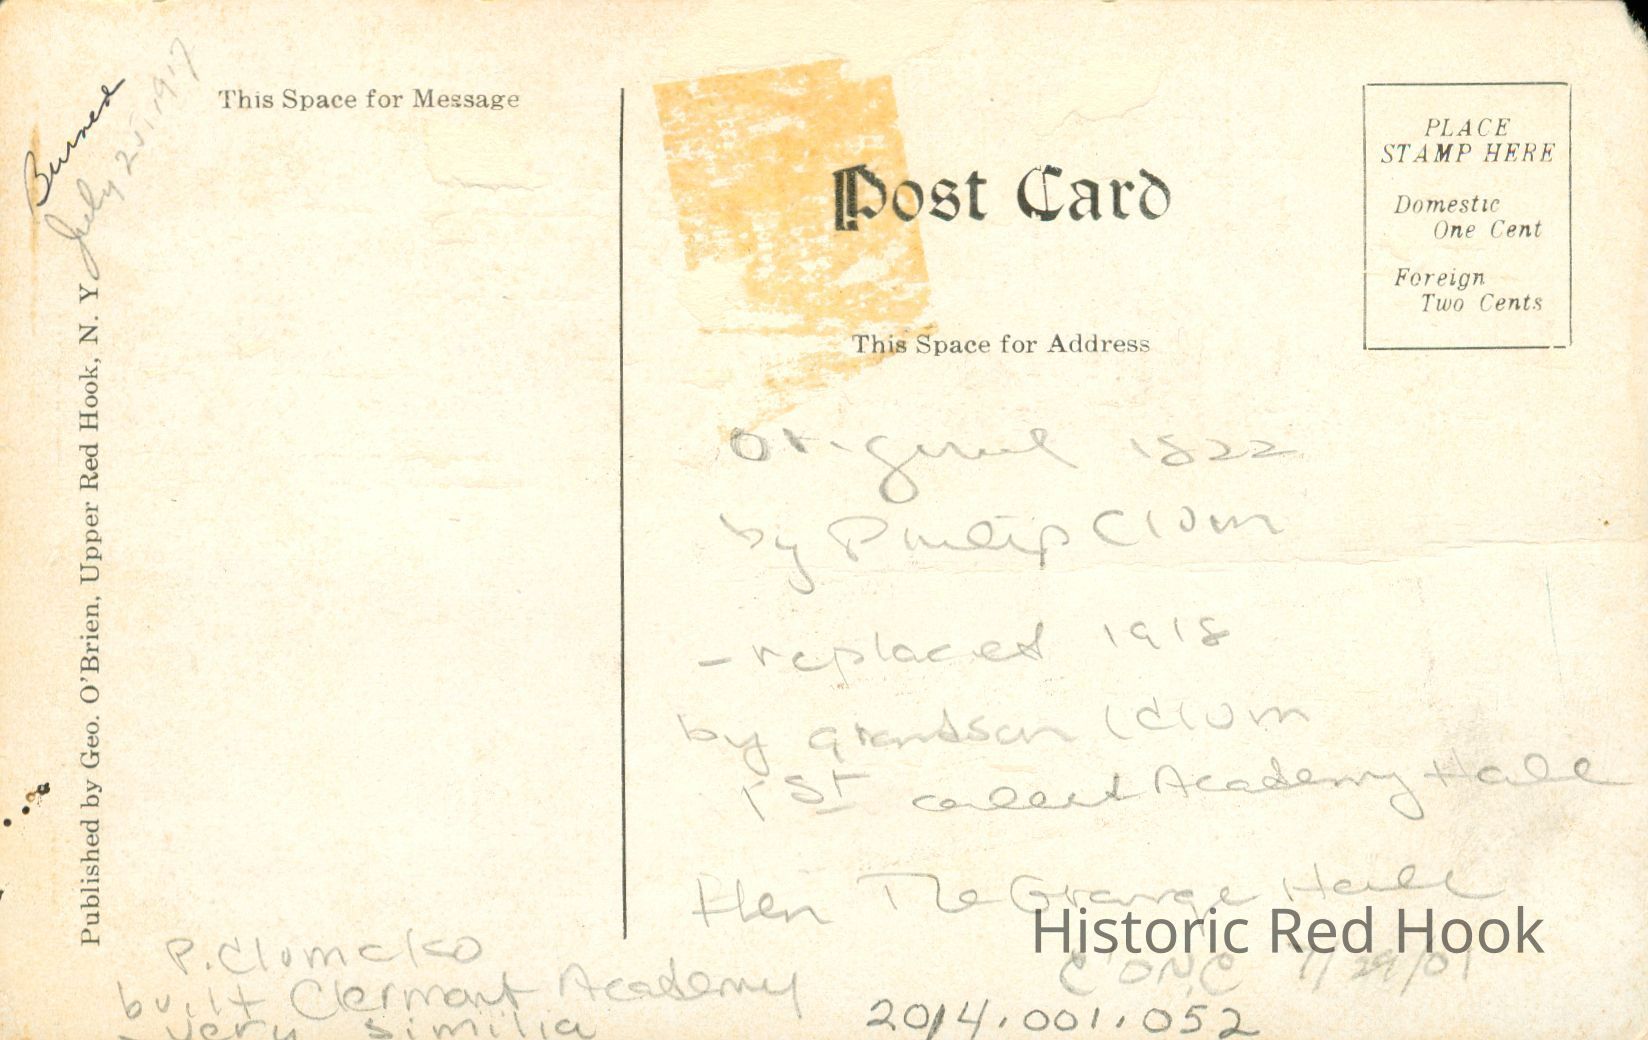 Burned
July 25, 1917
This Space for Message
Post Card
PLACE
STAMP HERE
Domestic
One Cent
Foreign
Two Cents
This Space for Address
Published by Geo. O'Brien, Upper Red Hook, N. Y
Original 1822
by Philip Clum
- replaced 1918
by grandson Clum
1st called Academy Hall
then The Grange Hall
Historic Red Hook
7/29/01
P. Clum also
built Clermont Academy
very similia
2014.001.052